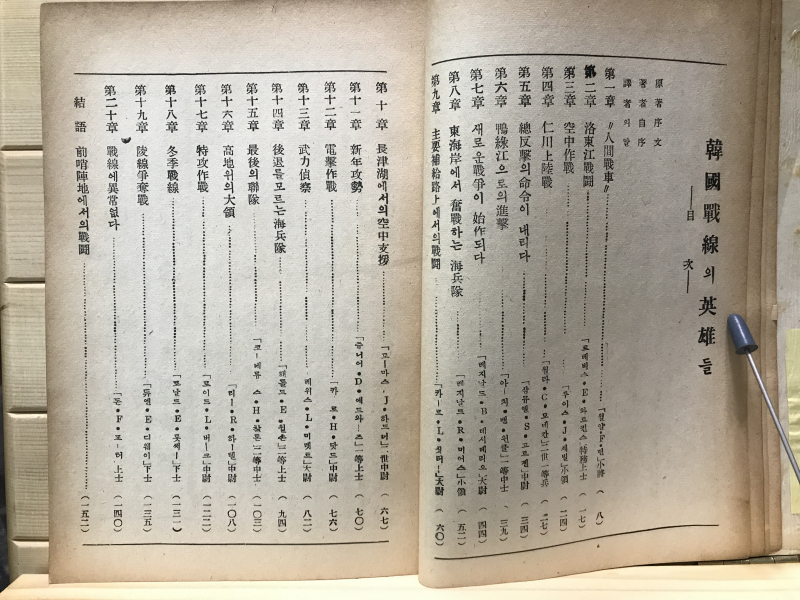 韓國戰線의 英雄들
——目 次——
原著序文
著者自序
譯者의 말
第一章 〃人間戰車〃 小將 (八)
第二章 洛東江戰鬪 「로베트스•E•와트킨스」特務上士 (一七)
第三章 空中作戰 「루이스•J•세빌」小領 (二四)
第四章 仁川上陸戰 二世一等兵 (二七)
第五章 總反擊의 命令이 내리다 「삼유엘•S•고르젠」中尉 (三四)
第六章 鴨綠江으로의 進擊 二等中士 (三九)
第七章 새로운 戰爭이 始作되다 「벤지날드•B•메시베마오」大尉 (四四)
第八章 東海岸에서 奮戰하는 海兵隊 「벤지날드•R•마이어스」小領 (五二)
第九章 主要補給路上에서의 戰鬪 「카ー르•L•싯터ー」大尉 (六〇)
第十章 長津湖에서의 空中支援 「고ー마스•J•하드너」二世中尉 (六七)
第十一章 新年攻勢 「쥬니어•D•에드와ー즈」一等上士 (七〇)
第十二章 電擊作戰 「카ー르•H•닷드」中尉 (七六)
第十三章 武力偵察 「레위스•L•미렛트」大尉 (八二)
第十四章 後退를 모르는 海兵隊 「해롤드•E•윌손」二等上士 (九四)
第十五章 最後의 聯隊 「코ー네류스•H•찰톤」二等中士 (一〇三)
第十六章 高地위의 大領 「리ー•R•하ー텔」中尉 (一〇八)
第十七章 特攻作戰 「로이드•L•버ー크」中尉 (一二二)
第十八章 冬季戰線 「로날드•E•롯써ー」下士 (一三一)
第十九章 陵線爭奪戰 「듀엔•E•디웨이」下士 (一三五)
第二十章 戰線에 異常없다 「돈•F•포ー터」上士 (一四〇)
結語 前哨陣地에서의 戰鬪 (一五二)